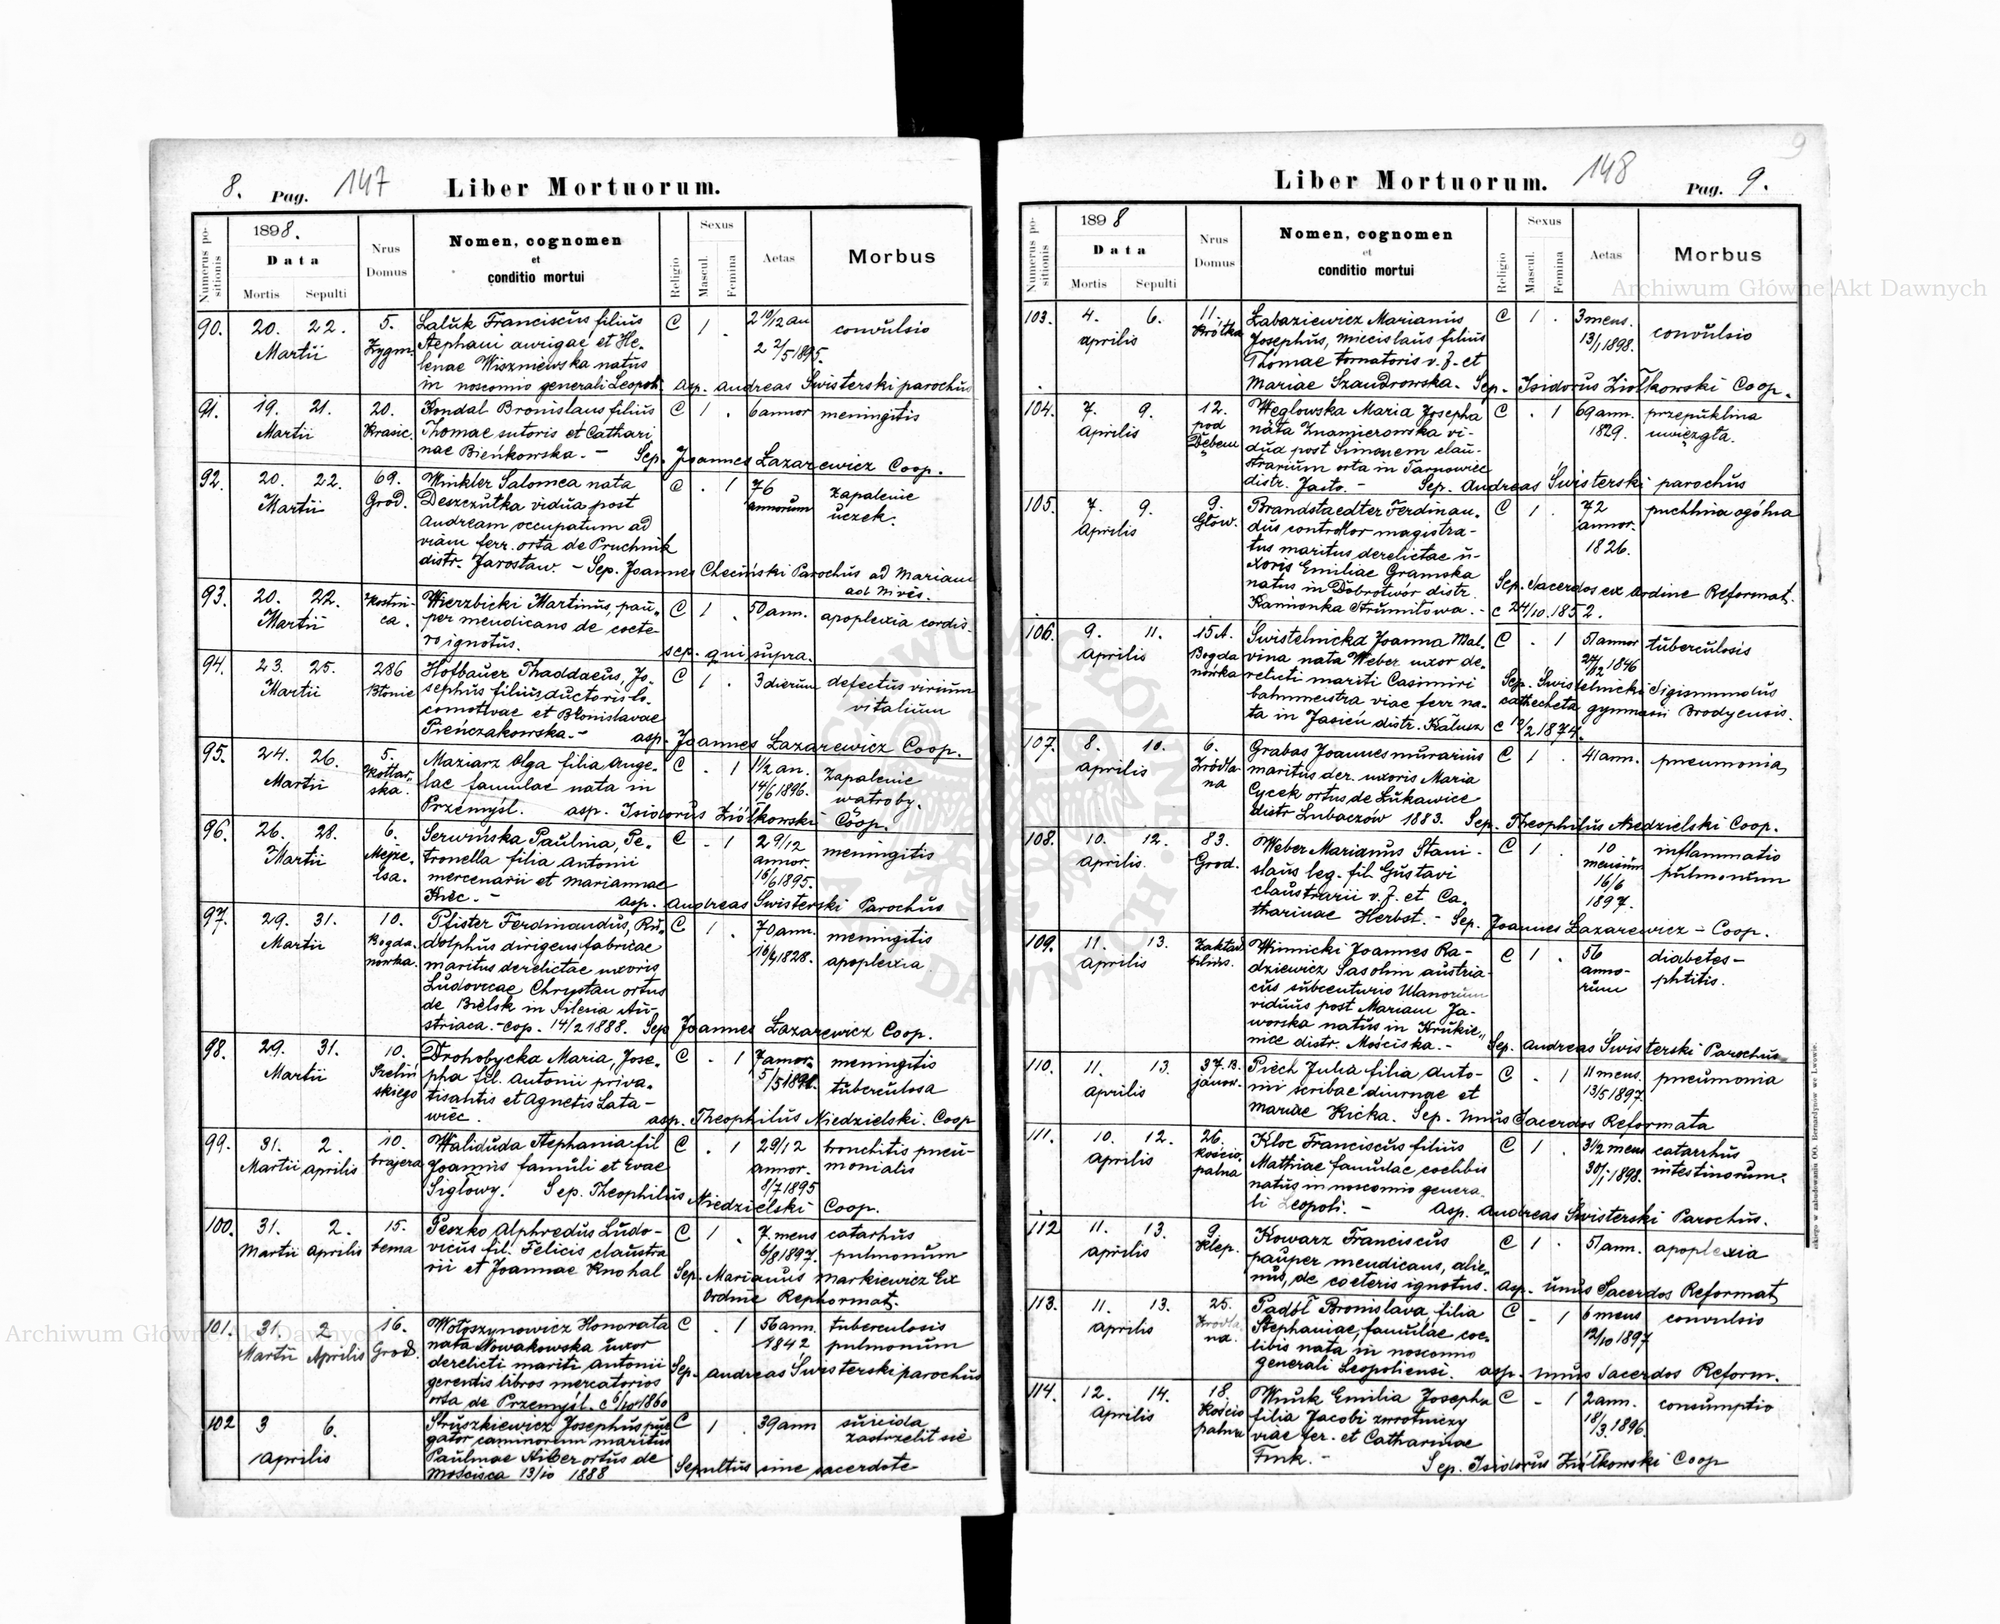 8. Pag. 147 Liber Mortuorum.
Numerus positionis
1898.
Data
Mortis Sepulti
Nrus Domus
Nomen, cognomen
et
conditio mortui
Religio
Sexus
Mascul. Femina
Aetas
Morbus
90. 20. 22. Martii 5. Zygm. Laluk Franciscus filius C 1 . 2 10/12 an convulsio
Stephani aurigae et He-
lenae Wiszniewska natus
in noscomio generali Leopoli. asp. Andreas Swisterski parochus
91. 19. 21. Martii 20. Krasic. Kondal Bronislaus filius C 1 . 6 annor meningitis
Thomae sutoris et Cathari
nae Bieńkowska. - Sep. Joannes Łazarewicz Coop.
92. 20. 22. Martii 69. Grod. Winkler Salomea nata C . 1 76 annorum zapalenie
Deszczułka vidua post
Andream occupatum ad
viam ferr. orta de Pruchnik
distr. Jarosław. - Sep. Joannes Checiński Parochus ad Mariam
ad Nives.
93. 20. 22. Martii Kostni-ca. Wierzbicki Martinus, pau- C 1 . 50 ann. apoplexia cordis.
per mendicans de coete-
ro ignotus. sep. qui supra.
94. 23. 25. Martii 286 Błonie Hofbauer Thaddaeus, Jo- C 1 . 3 dierum defectus virium
sephus filius ductoris lo- vitalium
comotivae et Bronislavae
Pieńczakowska. - asp. Joannes Łazarewicz Coop.
95. 24. 26. Martii 5. Kotlar-ska. Maziarz Olga filia Ange- C . 1 1 1/2 an. zapalenie
lae famulae nata in 14/6 1896. wątroby.
Przemyśl. asp. Isidorus Ziółkowski Coop.
96. 26. 28. Martii 6. Mejze-lsa. Serwińska Paulina, Pe- C . 1 2 9/12 meningitis
tronella filia Antonii annor.
mercenarii et Mariannae 16/6 1895.
Kiéc. - asp. Andreas Swisterski Parochus
97. 29. 31. Martii 10. Bogda-nówka. Pfister Ferdinandus, Ru- C 1 . 70 ann. meningitis
dolphus dirigens fabricae 1828. apoplexia.
maritus derelictae uxoris
Ludovicae Chrystau ortus
de Bielsk in Silesia Au-
striaca. - cop. 14/2 1888. Sep Joannes Łazarewicz Coop.
98. 29. 31. Martii 10. Szeliń skiego Drohobycka Maria, Jose- C . 1 7 annor. meningitis
pha fil. Antonii priva- tuberculosa
tisantis et Agnetis Lata-
wiéc. asp. Theophilus Niedzielski. Coop
99. 31. Martii 2. Aprilis 10. brajera Waliduda Stephania fil C . 1 2 9/12 bronchitis pneu-
Joannis famuli et Evae annor. monialis
Siglowy. Sep. Theophilus Niedzielski Coop. 8/7 1895
100. 31. Martii 2. Aprilis 15. bema Peszko Alphredus Ludo- C 1 . 7. mens catarhus
vicus fil. Felicis claustra 6/8 1897. pulmonum
rii et Joannae Knohal Sep. Marianus Markiewicz Ex
Ordine Rephormat.
101. 31. Martii 2 Aprilis 16. Grod. Wołoszynowicz Honorata C . 1 56 ann. tuberculosis
nata Nowakowska uxor 1842 pulmonum
derelicti mariti Antonii Sep. Andreas Swisterski parochus
gerentis libros mercatorios
orta de Przemyśl. c 1860
102 3 6. Aprilis Struszkiewicz Josephus pur C 1 . 39 ann suicida
gator caminorum maritus zastrzelił się
Paulinae ortus de
Mościsca 13/10 1888 Sepultus sine sacerdote
Liber Mortuorum. 148 Pag. 9.
9
Numerus positionis
1898
Data
Mortis Sepulti
Nrus Domus
Nomen, cognomen
et
conditio mortui
Religio
Sexus
Mascul. Femina
Aetas
Morbus
103. 4. 6. Aprilis 11. Krótka Łabaziewicz Marianus C 1 . 3 mens. convulsio
Josephus, Miecislaus filius 13/1 1898.
Thomae tornatoris v. f. et
Mariae Szandrowska. Sep. Isidorus Ziółkowski Coop.
104. 7. 9. Aprilis 12. pod Dębem Węglowska Maria Josepha C . 1 69 ann. przepuklina
nata Znamierowska vi- 1829. uwięzgła.
dua post Simonem clau-
strarium orta in Tarnowiec
distr. Jasło. - Sep. Andreas Swisterski parochus
105. 7. 9. Aprilis 9. Głów. Brandstaedter Ferdinan- C 1 . 72 annor. 1826. puchlina ogólna
dus controllor magistra-
tus maritus derelictae u-
xoris Emiliae Gramska
natus in Dobrotwór distr. Sep. Sacerdos ex Ordine Reformat.
Kamionka Strumiłowa. - c 24/10. 1852.
106. 9. 11. Aprilis 15 A. Bogda nówka Świstelnicka Joanna Mal- C . 1 51 annor tuberculosis
vina nata Weber uxor de- 24/12 1846
relicti mariti Casimiri Sep. Swistelnicki Sigismundus
bahnmeistra viae ferr na- cathecheta gymnasii Brodyensis.
ta in Jasień distr. Kałusz c 10/2 1874.
107. 8. 10. Aprilis 6. Źródla-na Grabas Joannes murarius C 1 . 41 ann. pneumonia
maritus der. uxoris Maria
Cycek ortus de Łukawice
distr Lubaczów 1883. Sep. Theophilus Niedzielski Coop.
108. 10. 12. Aprilis. 83. Grod. Weber Marianus Stani- C 1 . 10 mensium inflammatio
slaus leg. fil. Gustavi 16/6 1897. pulmonum
claustrarii v. f. et Ca-
tharinae Herbst. - Sep. Joannes Łazarewicz - Coop.
109. 11. 13. Aprilis Zakład Winnicki Joannes Ra- C 1 . 56 anno-rum diabetes -
dziewicz Sas olim austria- phtitis.
cus subcenturio Ulanorum
viduus post Mariam Ja-
worska natus in Hrukie-
nice distr. Mościska. - Sep. Andreas Swisterski Parochus
110. 11. 13. Aprilis 37. B. janow. Piech Julia filia Anto- C . 1 11 mens. pneumonia
nii scribae diurnae et 13/5 1897
Mariae Kicka. Sep. Unus Sacerdos Reformata
111. 10. 12. Aprilis 26. Kościo-palna Kloc Franciscus filius C 1 . 3 1/2 mens catarrhus
Mathiae famulae coelibis 1898. intestinorum.
natus in noscomio genera-
li Leopoli. - Asp. Andreas Swisterski Parochus.
112 11. 13. Aprilis 9. Klep. Kowarz Franciscus C 1 . 51 ann. apoplexia
pauper mendicans, alie-
nus, de coeteris ignotus. Asp. unus Sacerdos Reformat
113. 11. 13. Aprilis 25. Źródla na. Padół Bronislava filia C - 1 6 mens convulsio
Stephaniae, famulae coe- 12/10 1897
libis nata in noscomio
generali Leopoliensi. asp. unus Sacerdos Reform.
114. 12. 14. Aprilis 18. Kościo palna Wnuk Emilia Josepha C - 1 2 ann. consumptio
filia Jacobi zwrotniczy 18/3. 1896
viae fer. et Catharinae
Fink. - Sep. Isidorus Ziółkowski Coop
Archiwum Główne Akt Dawnych
Archiwum Główne Akt Dawnych